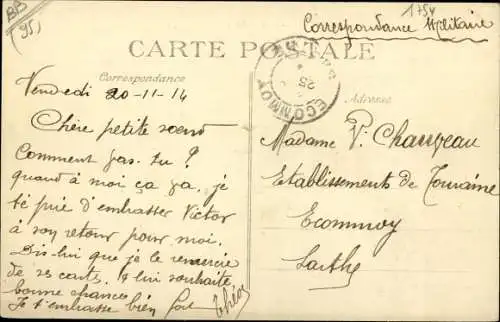 BB
(95)
1754
Correspondance Militaire
CARTE POSTALE
Correspondance
Adresse
ECOMMOY
25
Vendredi 20-11-14
Chère petite soeur
Comment vas-tu ?
quand à moi ça va. je
te prie d'embrasser Victor
à son retour pour moi.
Dis-lui que je le remercie
de ses carte. & lui souhaite
bonne chance
Je t'embrasse bien fort
Théo
Madame V. Chauveau
Etablissements de Touraine
Ecommoy
Sarthe